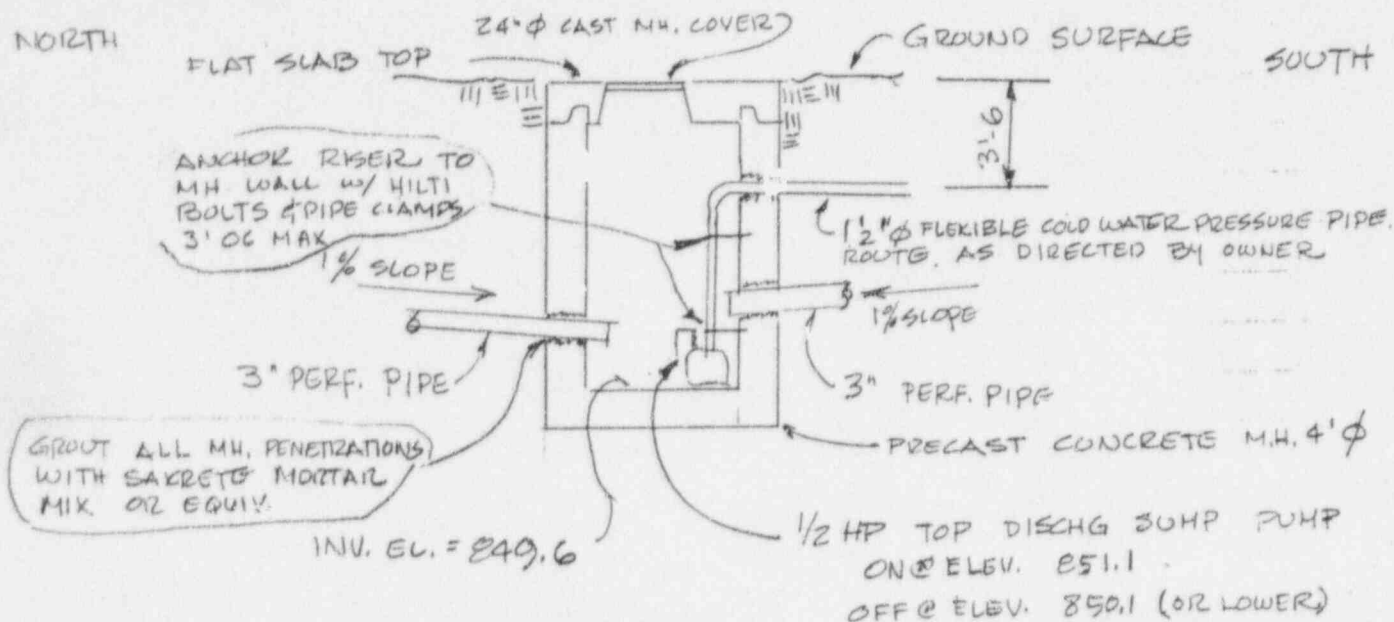 NORTH
24"ϕ CAST MH. COVER
GROUND SURFACE
SOUTH
FLAT SLAB TOP
3'-6
ANCHOR RISER TO
MH WALL W/ HILTI
BOLTS & PIPE CLAMPS
3' OC MAX
1 1/2"ϕ FLEXIBLE COLD WATER PRESSURE PIPE.
ROUTE AS DIRECTED BY OWNER
1% SLOPE
1% SLOPE
3" PERF. PIPE
3" PERF. PIPE
GROUT ALL MH. PENETRATIONS
WITH SAKRETE MORTAR
MIX OR EQUIV.
PRECAST CONCRETE M.H. 4'ϕ
INV. EL. = 849.6
1/2 HP TOP DISCHG SUMP PUMP
ON @ ELEV. 851.1
OFF @ ELEV. 850.1 (OR LOWER)